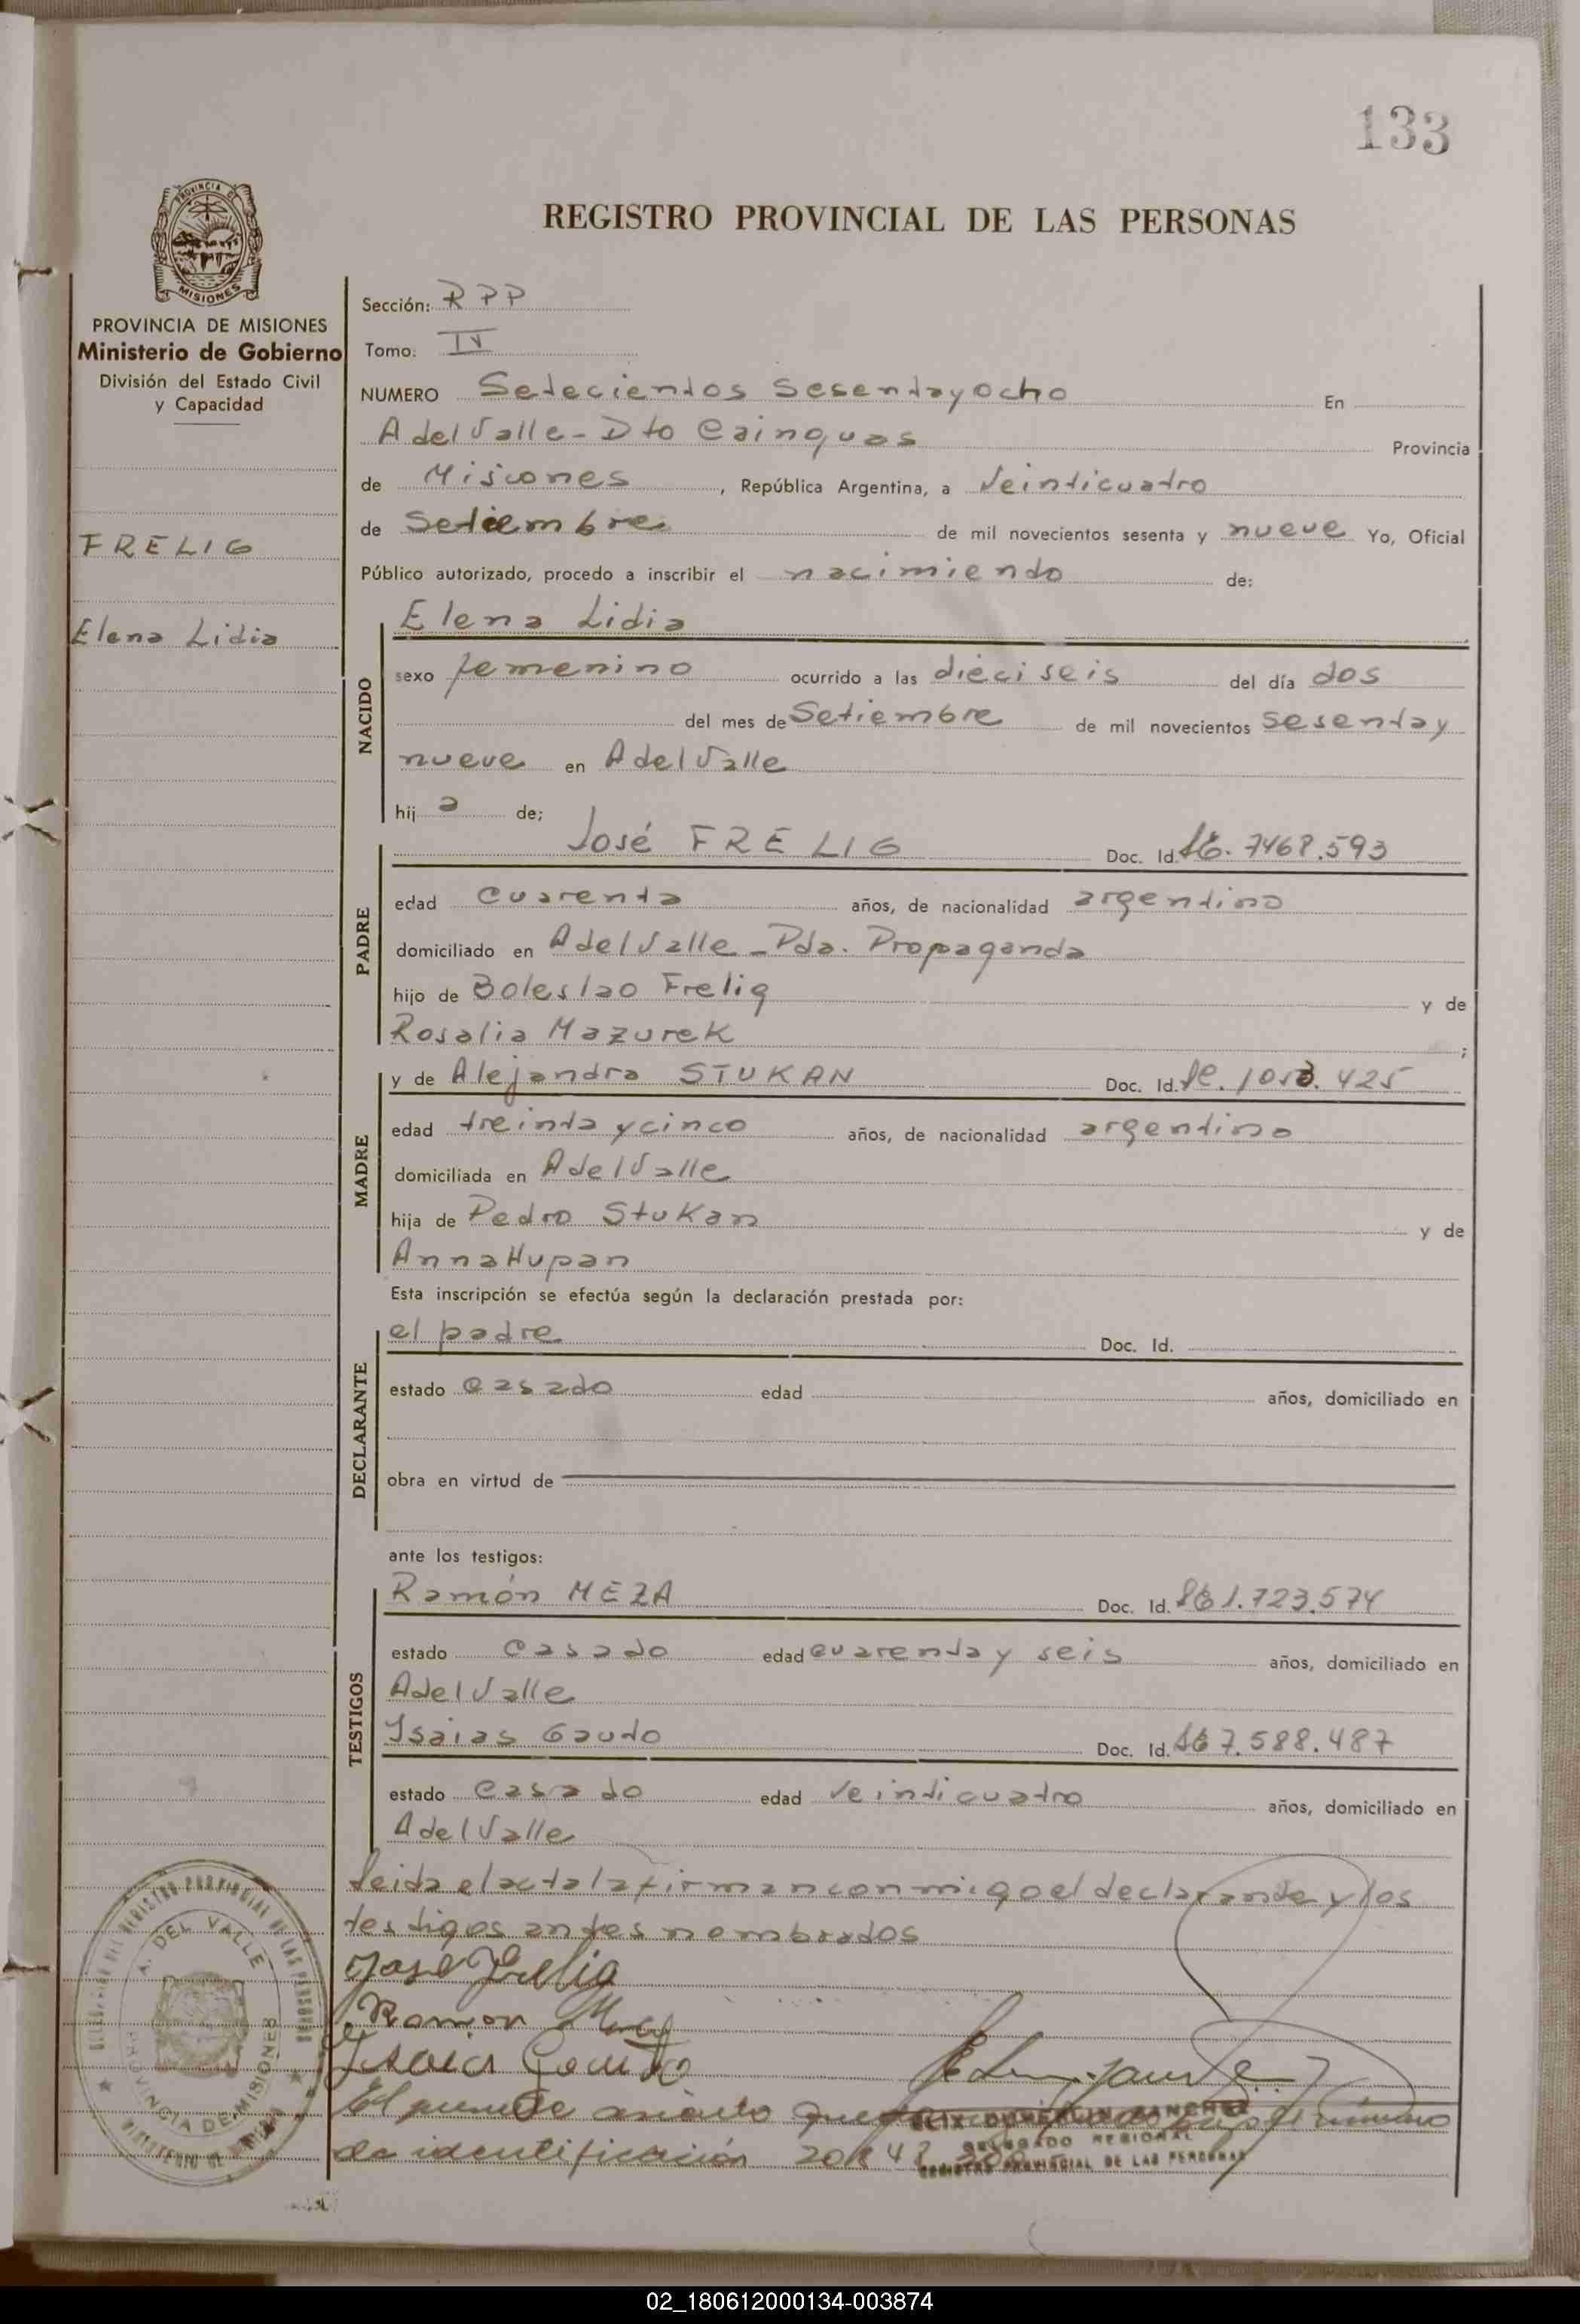 133
REGISTRO PROVINCIAL DE LAS PERSONAS
PROVINCIA DE
MISIONES
PROVINCIA DE MISIONES
Ministerio de Gobierno
División del Estado Civil
y Capacidad
FRELIG
Elena Lidia
Sección: RPP
Tomo: IV
NUMERO Setecientos Sesentayocho En
A del Valle - Dto Cainguas Provincia
de Misiones, República Argentina, a Veinticuatro
de Setiembre de mil novecientos sesenta y nueve Yo, Oficial
Público autorizado, procedo a inscribir el nacimiento de:
Elena Lidia
NACIDO
sexo femenino ocurrido a las dieciseis del día dos
del mes de Setiembre de mil novecientos Sesentay
nueve en A del Valle
hija de;
PADRE
José FRELIG Doc. Id. 7468.593
edad cuarenta años, de nacionalidad argentino
domiciliado en A del Valle - Pda. Propaganda
hijo de Boleslao Frelig y de
Rosalia Mazurek;
MADRE
y de Alejandra STUKAN Doc. Id. 425
edad treinta y cinco años, de nacionalidad argentina
domiciliada en A del Valle
hija de Pedro Stukan y de
Anna Hupan
Esta inscripción se efectúa según la declaración prestada por:
DECLARANTE
el padre Doc. Id.
estado casado edad años, domiciliado en
obra en virtud de
ante los testigos:
TESTIGOS
Ramón MEZA Doc. Id. 1.723.574
estado casado edad cuarenta y seis años, domiciliado en
A del Valle
Isaias Gaudo Doc. Id. 7.588.487
estado casado edad veinticuatro años, domiciliado en
A del Valle
Leida el acta la firman conmigo el declarante y los
testigos antes nombrados
José Frelig
Ramon Meza
Isaias Gaudo
El presente asiento bajo el número
de identificación
SANCHEZ
DELEGADO REGIONAL
REGISTRO PROVINCIAL DE LAS PERSONAS
DEL REGISTRO PROVINCIAL DE LAS PERSONAS
A. DEL VALLE
PROVINCIA DE MISIONES
02_180612000134-003874